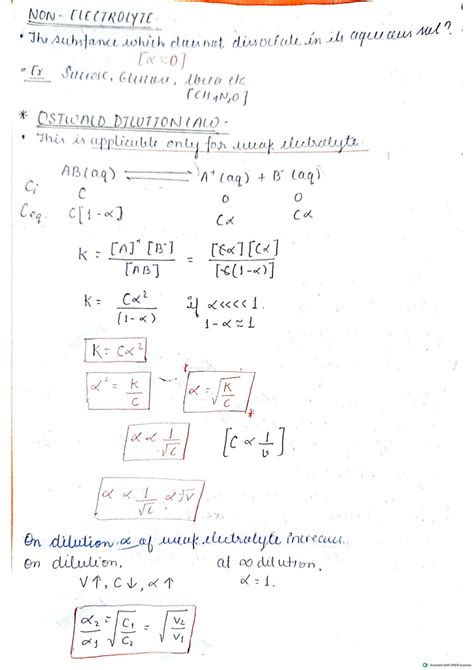 NON - ELECTROLYTE -
• The substance which does not dissociate in its aqueous solⁿ.
[α = 0]
• Ex. Sucrose, Glucose, Urea etc
[CH₄N₂O]
* OSTWALD DILUTION LAW -
• This is applicable only for weak electrolyte.
AB(aq) ⇌ A⁺(aq) + B⁻(aq)
Ci C 0 0
Ceq. C[1-α] Cα Cα
K = [A]⁺[B⁻] / [AB] = [Cα][Cα] / [C(1-α)]
K = Cα² / (1-α) if α <<<< 1.
1-α ≈ 1
K = Cα²
α² = K/C α = √(K/C)
α ∝ 1/√C [C ∝ 1/V].
α ∝ 1/√C ∝ √V
On dilution α of weak electrolyte increases.
On dilution, at ∞ dilution,
V↑, C↓, α↑ α = 1.
α₂/α₁ = √(C₁/C₂) = √(V₂/V₁)
Scanned with OKEN Scanner